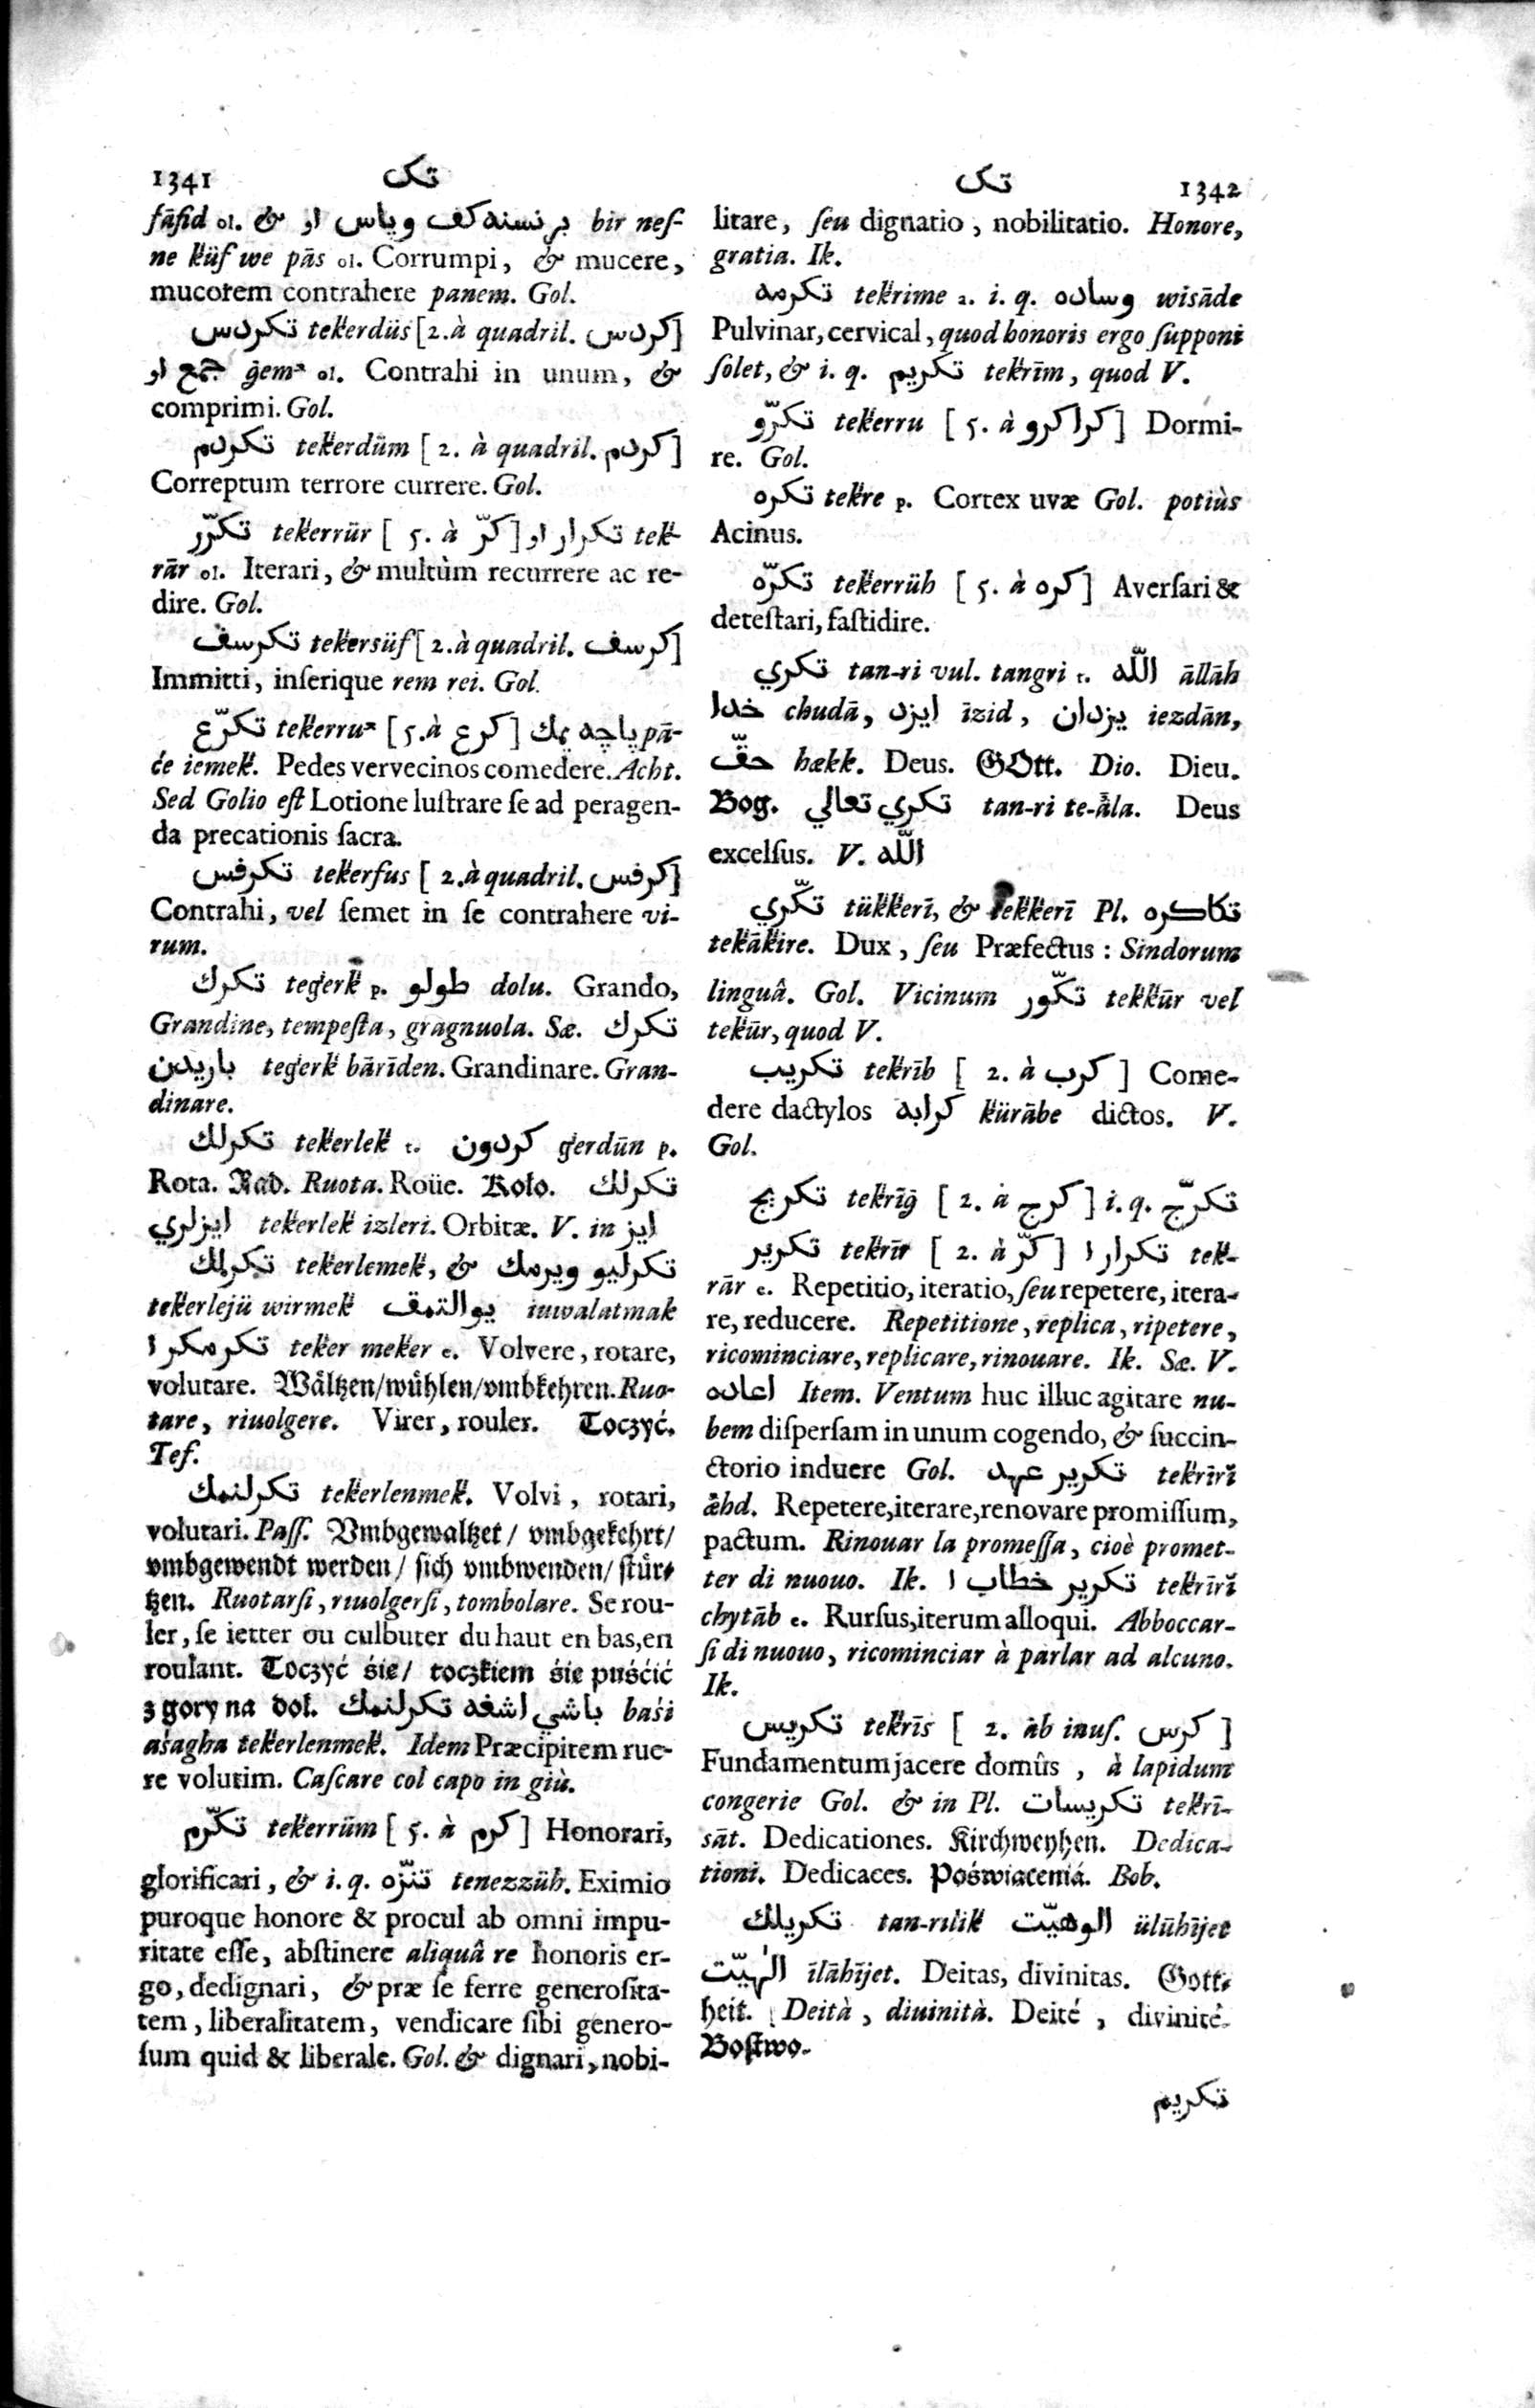 1341 تک
fāſid ol. & بر نسنه كف وپاس او bir neſ-
ne küf we pās ol. Corrumpi, & mucere,
mucorem contrahere panem. Gol.
تكردس tekerdüs [2. à quadril. كردس]
جمع او ǧemᵃ ol. Contrahi in unum, &
comprimi. Gol.
تكردم tekerdüm [2. à quadril. كردم]
Correptum terrore currere. Gol.
تكرّر tekerrür [5. à كرّ] تكرار او tek-
rār ol. Iterari, & multùm recurrere ac re-
dire. Gol.
تكرسف tekersüf [2. à quadril. كرسف]
Immitti, inſerique rem rei. Gol.
تكرّع tekerruᵃ [5. à كرع] پاچه يمك pā-
će iemek. Pedes vervecinos comedere. Acht.
Sed Golio eſt Lotione luſtrare ſe ad peragen-
da precationis ſacra.
تكرفس tekerfus [2. à quadril. كرفس]
Contrahi, vel ſemet in ſe contrahere vi-
rum.
تكرك tegerk p. طولو dolu. Grando,
Grandine, tempeſta, gragnuola. Sæ. تكرك
باريدن tegerk bārīden. Grandinare. Gran-
dinare.
تكرلك tekerlek t. كردون gerdūn p.
Rota. Rad. Ruota. Roüe. Koło. تكرلك
ايزلري tekerlek izleri. Orbitæ. V. in ايز
تكرلمك tekerlemek, & تكرليو ويرمك
tekerlejü wirmek يوالتمق iuwalatmak
تكرمكر ا teker meker e. Volvere, rotare,
volutare. Wältzen/wühlen/vmbkehren. Ruo-
tare, riuolgere. Virer, rouler. Toczyć.
Teſ.
تكرلنمك tekerlenmek. Volvi, rotari,
volutari. Paſſ. Vmbgewaltzet/ vmbgekehrt/
vmbgewendt werden/ ſich vmbwenden/ ſtür-
tzen. Ruotarſi, riuolgerſi, tombolare. Se rou-
ler, ſe ietter ou culbuter du haut en bas, en
roulant. Toczyć śie/ toczkiem śie puśćić
z gory na doł. باشي اشغه تكرلنمك baśi
aśagha tekerlenmek. Idem Præcipitem rue-
re volutim. Caſcare col capo in giù.
تكرّم tekerrüm [5. à كرم] Honorari,
glorificari, & i. q. تنزّه tenezzüh. Eximio
puroque honore & procul ab omni impu-
ritate eſſe, abſtinere aliquâ re honoris er-
go, dedignari, & præ ſe ferre generoſita-
tem, liberalitatem, vendicare ſibi genero-
ſum quid & liberale. Gol. & dignari, nobi-
تک 1342
litare, ſeu dignatio, nobilitatio. Honore,
gratia. Ik.
تكرمه tekrime a. i. q. وساده wisāde
Pulvinar, cervical, quod honoris ergo ſupponi
ſolet, & i. q. تكريم tekrīm, quod V.
تكرّو tekerru [5. à كرا كرو] Dormi-
re. Gol.
تكره tekre p. Cortex uvæ Gol. potiùs
Acinus.
تكرّه tekerrüh [5. à كره] Averſari &
deteſtari, faſtidire.
تكري tan-ri vul. tangri t. اللّه āllāh
خدا chudā, ايزد īzid, يزدان iezdān,
حقّ hækk. Deus. GOtt. Dio. Dieu.
Bog. تكري تعالي tan-ri te-āla. Deus
excelſus. V. اللّه
تكّري tükkerī, & tekkerī Pl. تكاكره
tekākire. Dux, ſeu Præfectus: Sindorum
linguâ. Gol. Vicinum تكّور tekkūr vel
tekūr, quod V.
تكريب tekrīb [2. à كرب] Come-
dere dactylos كرابه kürābe dictos. V.
Gol.
تكريج tekrīǧ [2. à كرج] i. q. تكرّج
تكرير tekrīr [2. à كرّ] تكرار ا tek-
rār e. Repetitio, iteratio, ſeu repetere, itera-
re, reducere. Repetitione, replica, ripetere,
ricominciare, replicare, rinouare. Ik. Sæ. V.
اعاده Item. Ventum huc illuc agitare nu-
bem diſperſam in unum cogendo, & ſuccin-
ctorio induere Gol. تكرير عهد tekrīrĭ
æhd. Repetere, iterare, renovare promiſſum,
pactum. Rinouar la promeſſa, cioè promet-
ter di nuouo. Ik. تكرير خطاب ا tekrīrĭ
chytāb e. Rurſus, iterum alloqui. Abboccar-
ſi di nuouo, ricominciar à parlar ad alcuno.
Ik.
تكريس tekrīs [2. ab inuſ. كرس]
Fundamentum jacere domûs, à lapidum
congerie Gol. & in Pl. تكريسات tekrī-
sāt. Dedicationes. Kirchweyhen. Dedica-
tioni. Dedicaces. Poświacenia. Bob.
تكريلك tan-rılik الوهيّت ülūhījet
الٰهيّت īlāhījet. Deitas, divinitas. Gott-
heit. Deità, diuinità. Deité, divinité.
Boſtwo.
تكريم